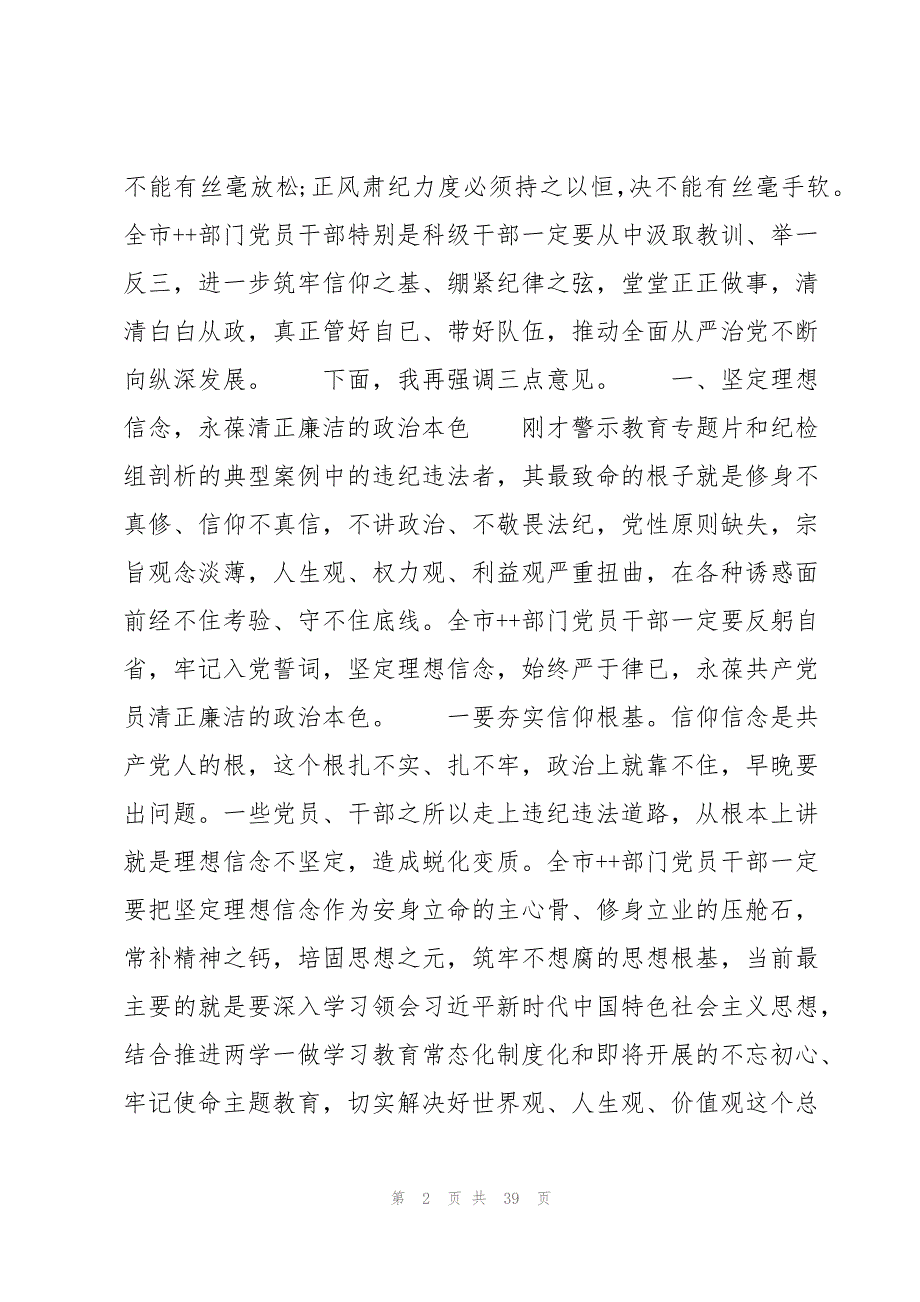 不能有丝毫放松;正风肃纪力度必须持之以恒,决不能有丝毫手软。
全市++部门党员干部特别是科级干部一定要从中汲取教训、举一
反三，进一步筑牢信仰之基、绷紧纪律之弦，堂堂正正做事，清
清白白从政，真正管好自已、带好队伍，推动全面从严治党不断
向纵深发展。　　下面，我再强调三点意见。　　一、坚定理想
信念，永葆清正廉洁的政治本色　　刚才警示教育专题片和纪检
组剖析的典型案例中的违纪违法者，其最致命的根子就是修身不
真修、信仰不真信，不讲政治、不敬畏法纪，党性原则缺失，宗
旨观念淡薄，人生观、权力观、利益观严重扭曲，在各种诱惑面
前经不住考验、守不住底线。全市++部门党员干部一定要反躬自
省，牢记入党誓词，坚定理想信念，始终严于律已，永葆共产党
员清正廉洁的政治本色。　　一要夯实信仰根基。信仰信念是共
产党人的根，这个根扎不实、扎不牢，政治上就靠不住，早晚要
出问题。一些党员、干部之所以走上违纪违法道路，从根本上讲
就是理想信念不坚定，造成蜕化变质。全市++部门党员干部一定
要把坚定理想信念作为安身立命的主心骨、修身立业的压舱石，
常补精神之钙，培固思想之元，筑牢不想腐的思想根基，当前最
主要的就是要深入学习领会习近平新时代中国特色社会主义思想，
结合推进两学一做学习教育常态化制度化和即将开展的不忘初心、
牢记使命主题教育，切实解决好世界观、人生观、价值观这个总
第 2 页 共 39 页